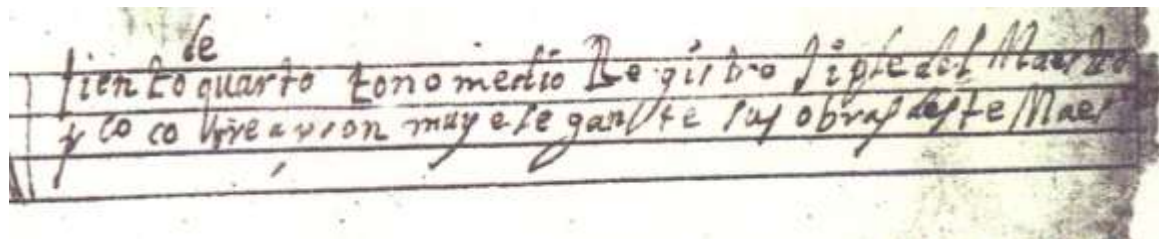 de
tiento quarto tono medio Registro tiple del Maestro
y co co muy elegante sus obras deste Maes